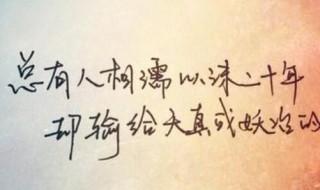 总有人相濡以沫二十年
却输给天真或妖冶的